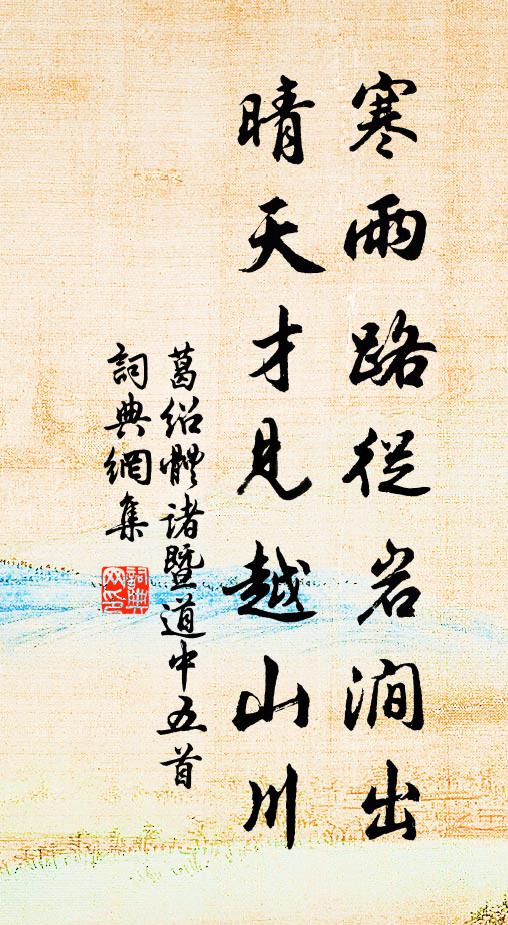 寒雨路從岩澗出
晴天才見越山川
葛紹體諸暨道中五首
詞典網集
詞典网印